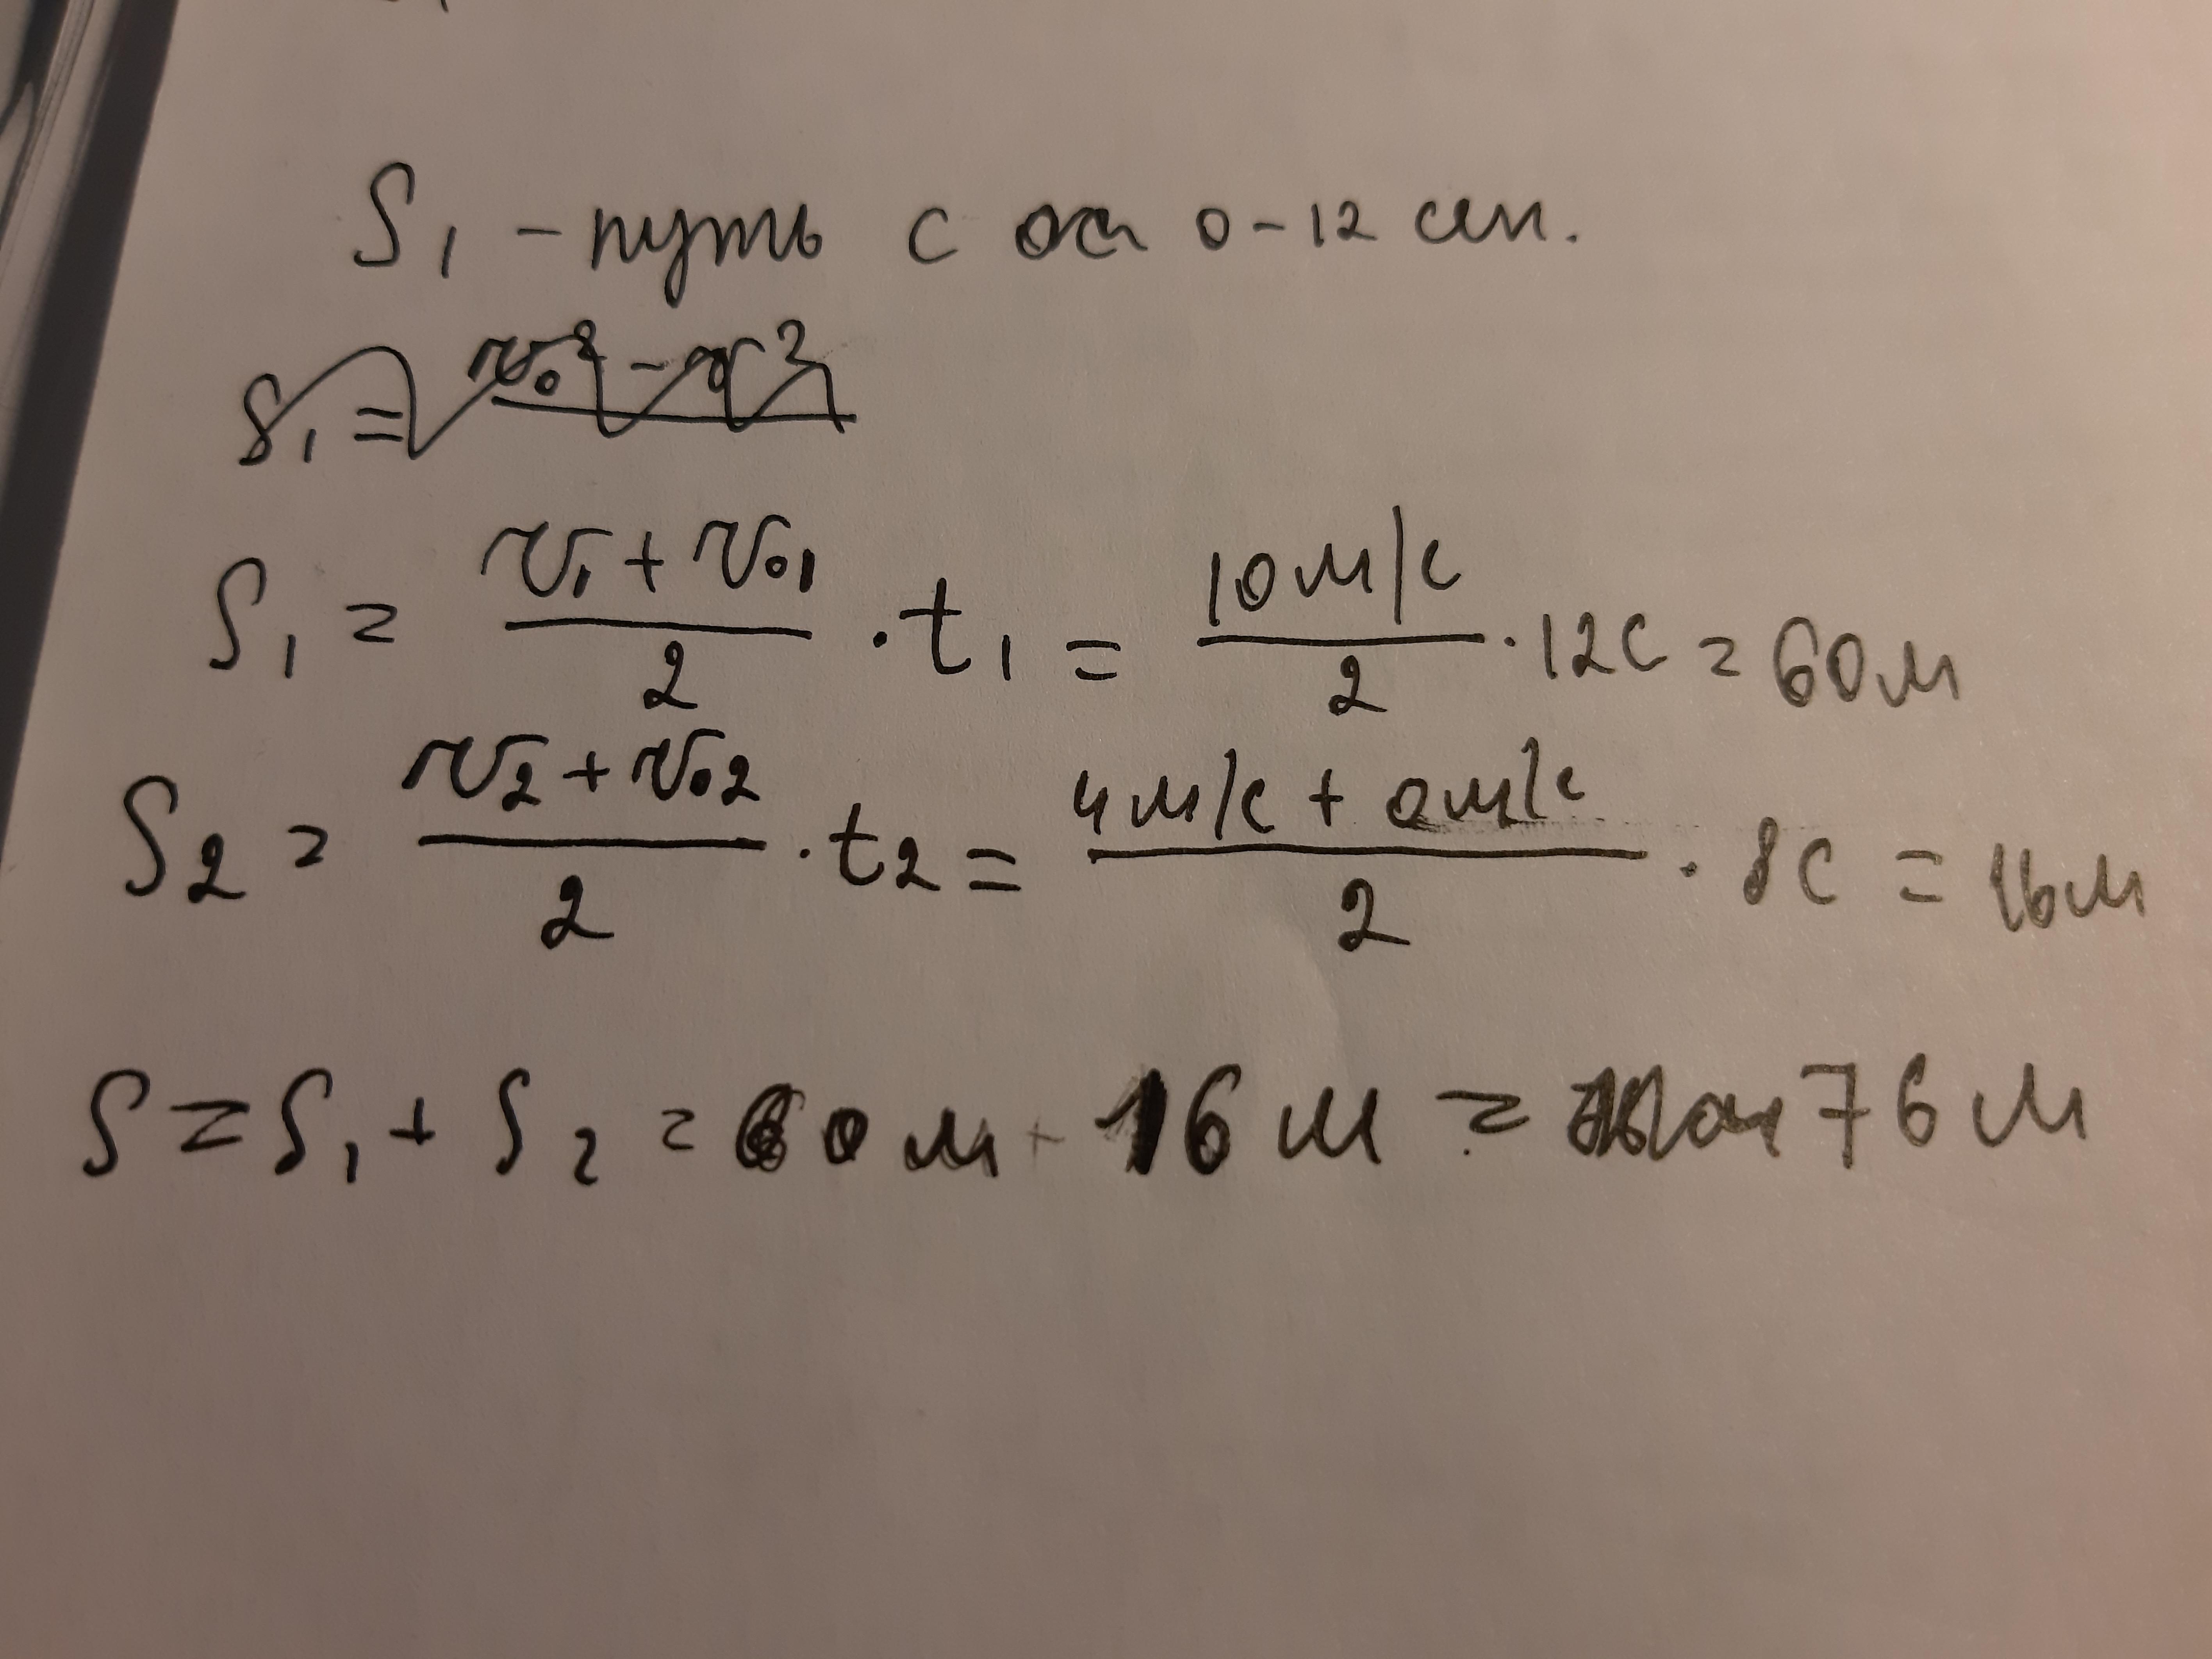 S₁ - путь с 0-12 сек.
S₁ = (v₁ + v₀₁)/2 · t₁ = (10 м/с)/2 · 12с = 60м
S₂ = (v₂ + v₀₂)/2 · t₂ = (4 м/с + 0 м/с)/2 · 8с = 16м
S = S₁ + S₂ = 60 м + 16 м = 76 м